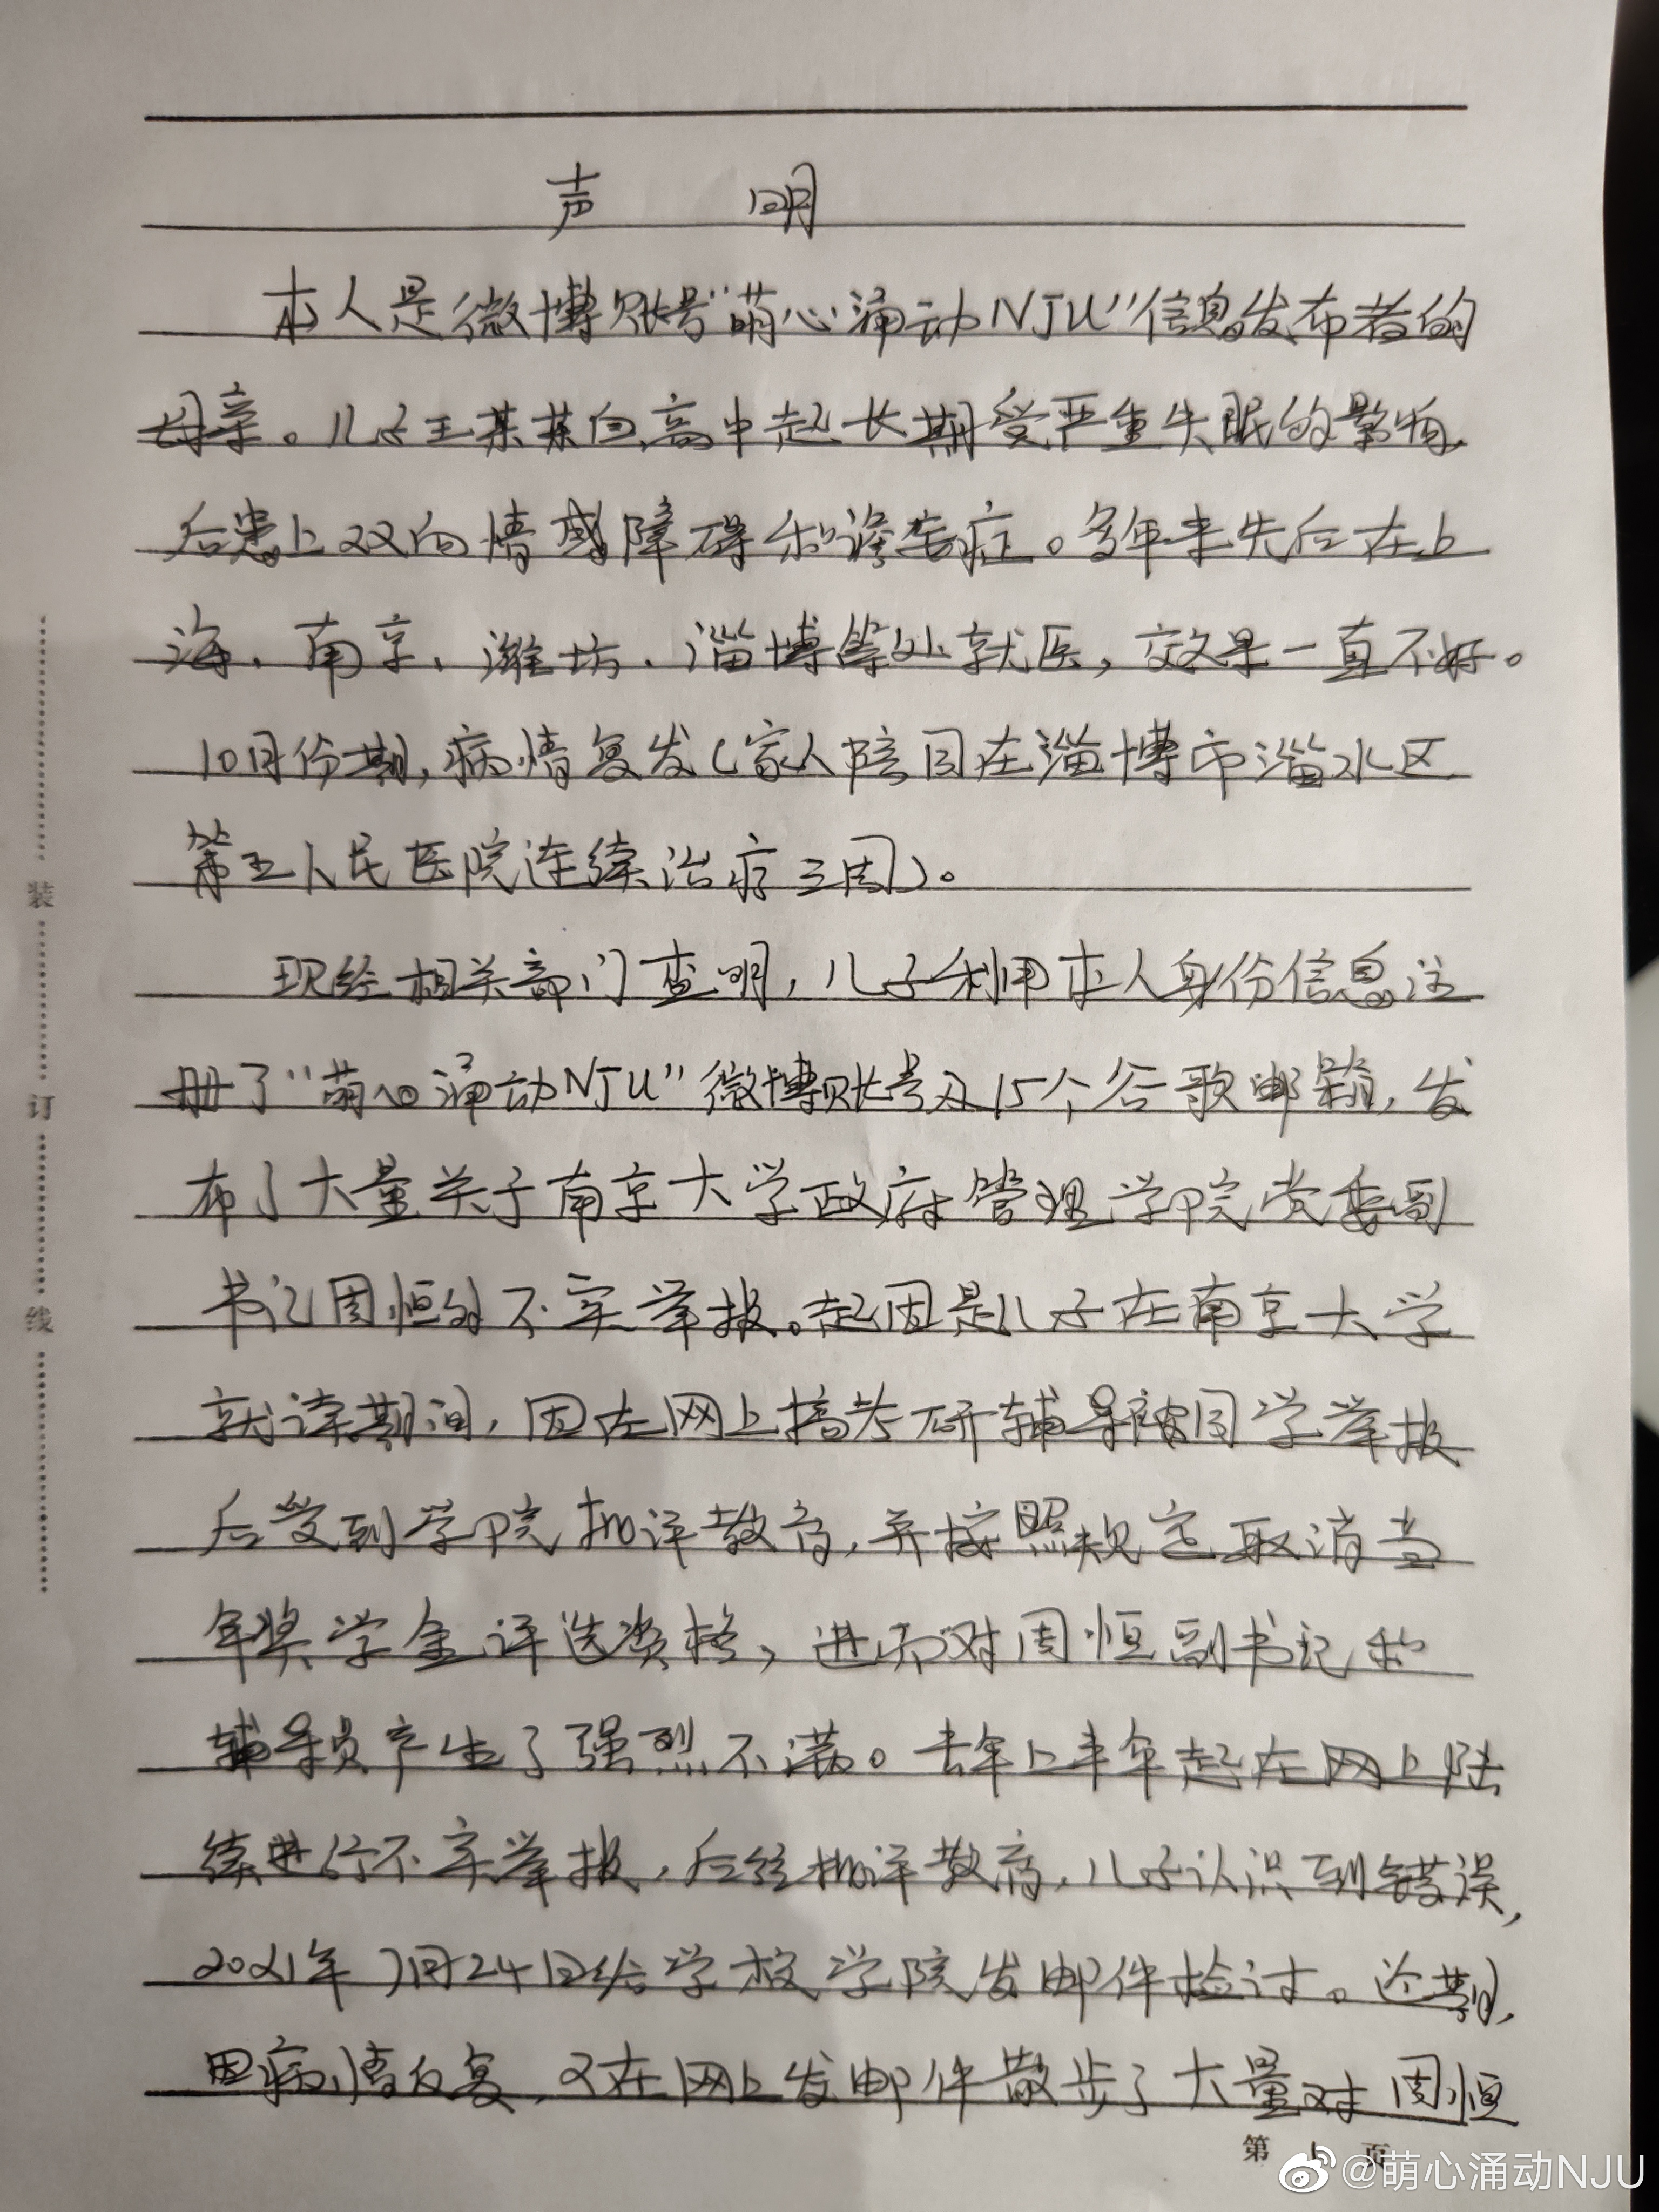 声 明
本人是微博账号"萌心涌动NJU"信息发布者的
母亲。儿子王某某自高中起长期受严重失眠的影响,
后患上双向情感障碍和谵妄症。多年来先后在上
海、南京、潍坊、淄博等处就医,效果一直不好。
10月份期,病情复发(家人陪同在淄博市淄水区
第五人民医院连续治疗三周)。
现经相关部门查明,儿子利用本人身份信息注
册了"萌心涌动NJU"微博账号及15个谷歌邮箱,发
布了大量关于南京大学政府管理学院党委副
书记周恒的不实举报。起因是儿子在南京大学
就读期间,因在网上搞考研辅导被同学举报
后受到学院批评教育,并按照规定取消当
年奖学金评选资格,进而对周恒副书记和
辅导员产生了强烈不满。去年上半年起在网上陆
续进行不实举报,后经批评教育,儿子认识到错误,
2021年7月24日给学校学院发邮件检讨。近期,
因病情反复,又在网上发邮件散步了大量对周恒
装
订
线
第 1 页
@萌心涌动NJU